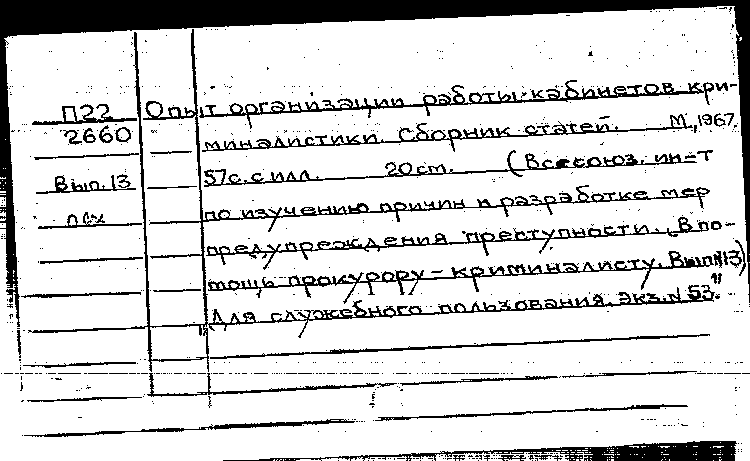 П22 Опыт организации работы кабинетов кри-
2660 миналистики. Сборник статей. М., 1967.
Вып. 13 57с. с илл. 20 см. (Всесоюз. ин-т
по изучению причин и разработке мер
предупреждения преступности. „В по-
мощь прокурору - криминалисту. Вып №13)
„Для служебного пользования. Экз. N 53."